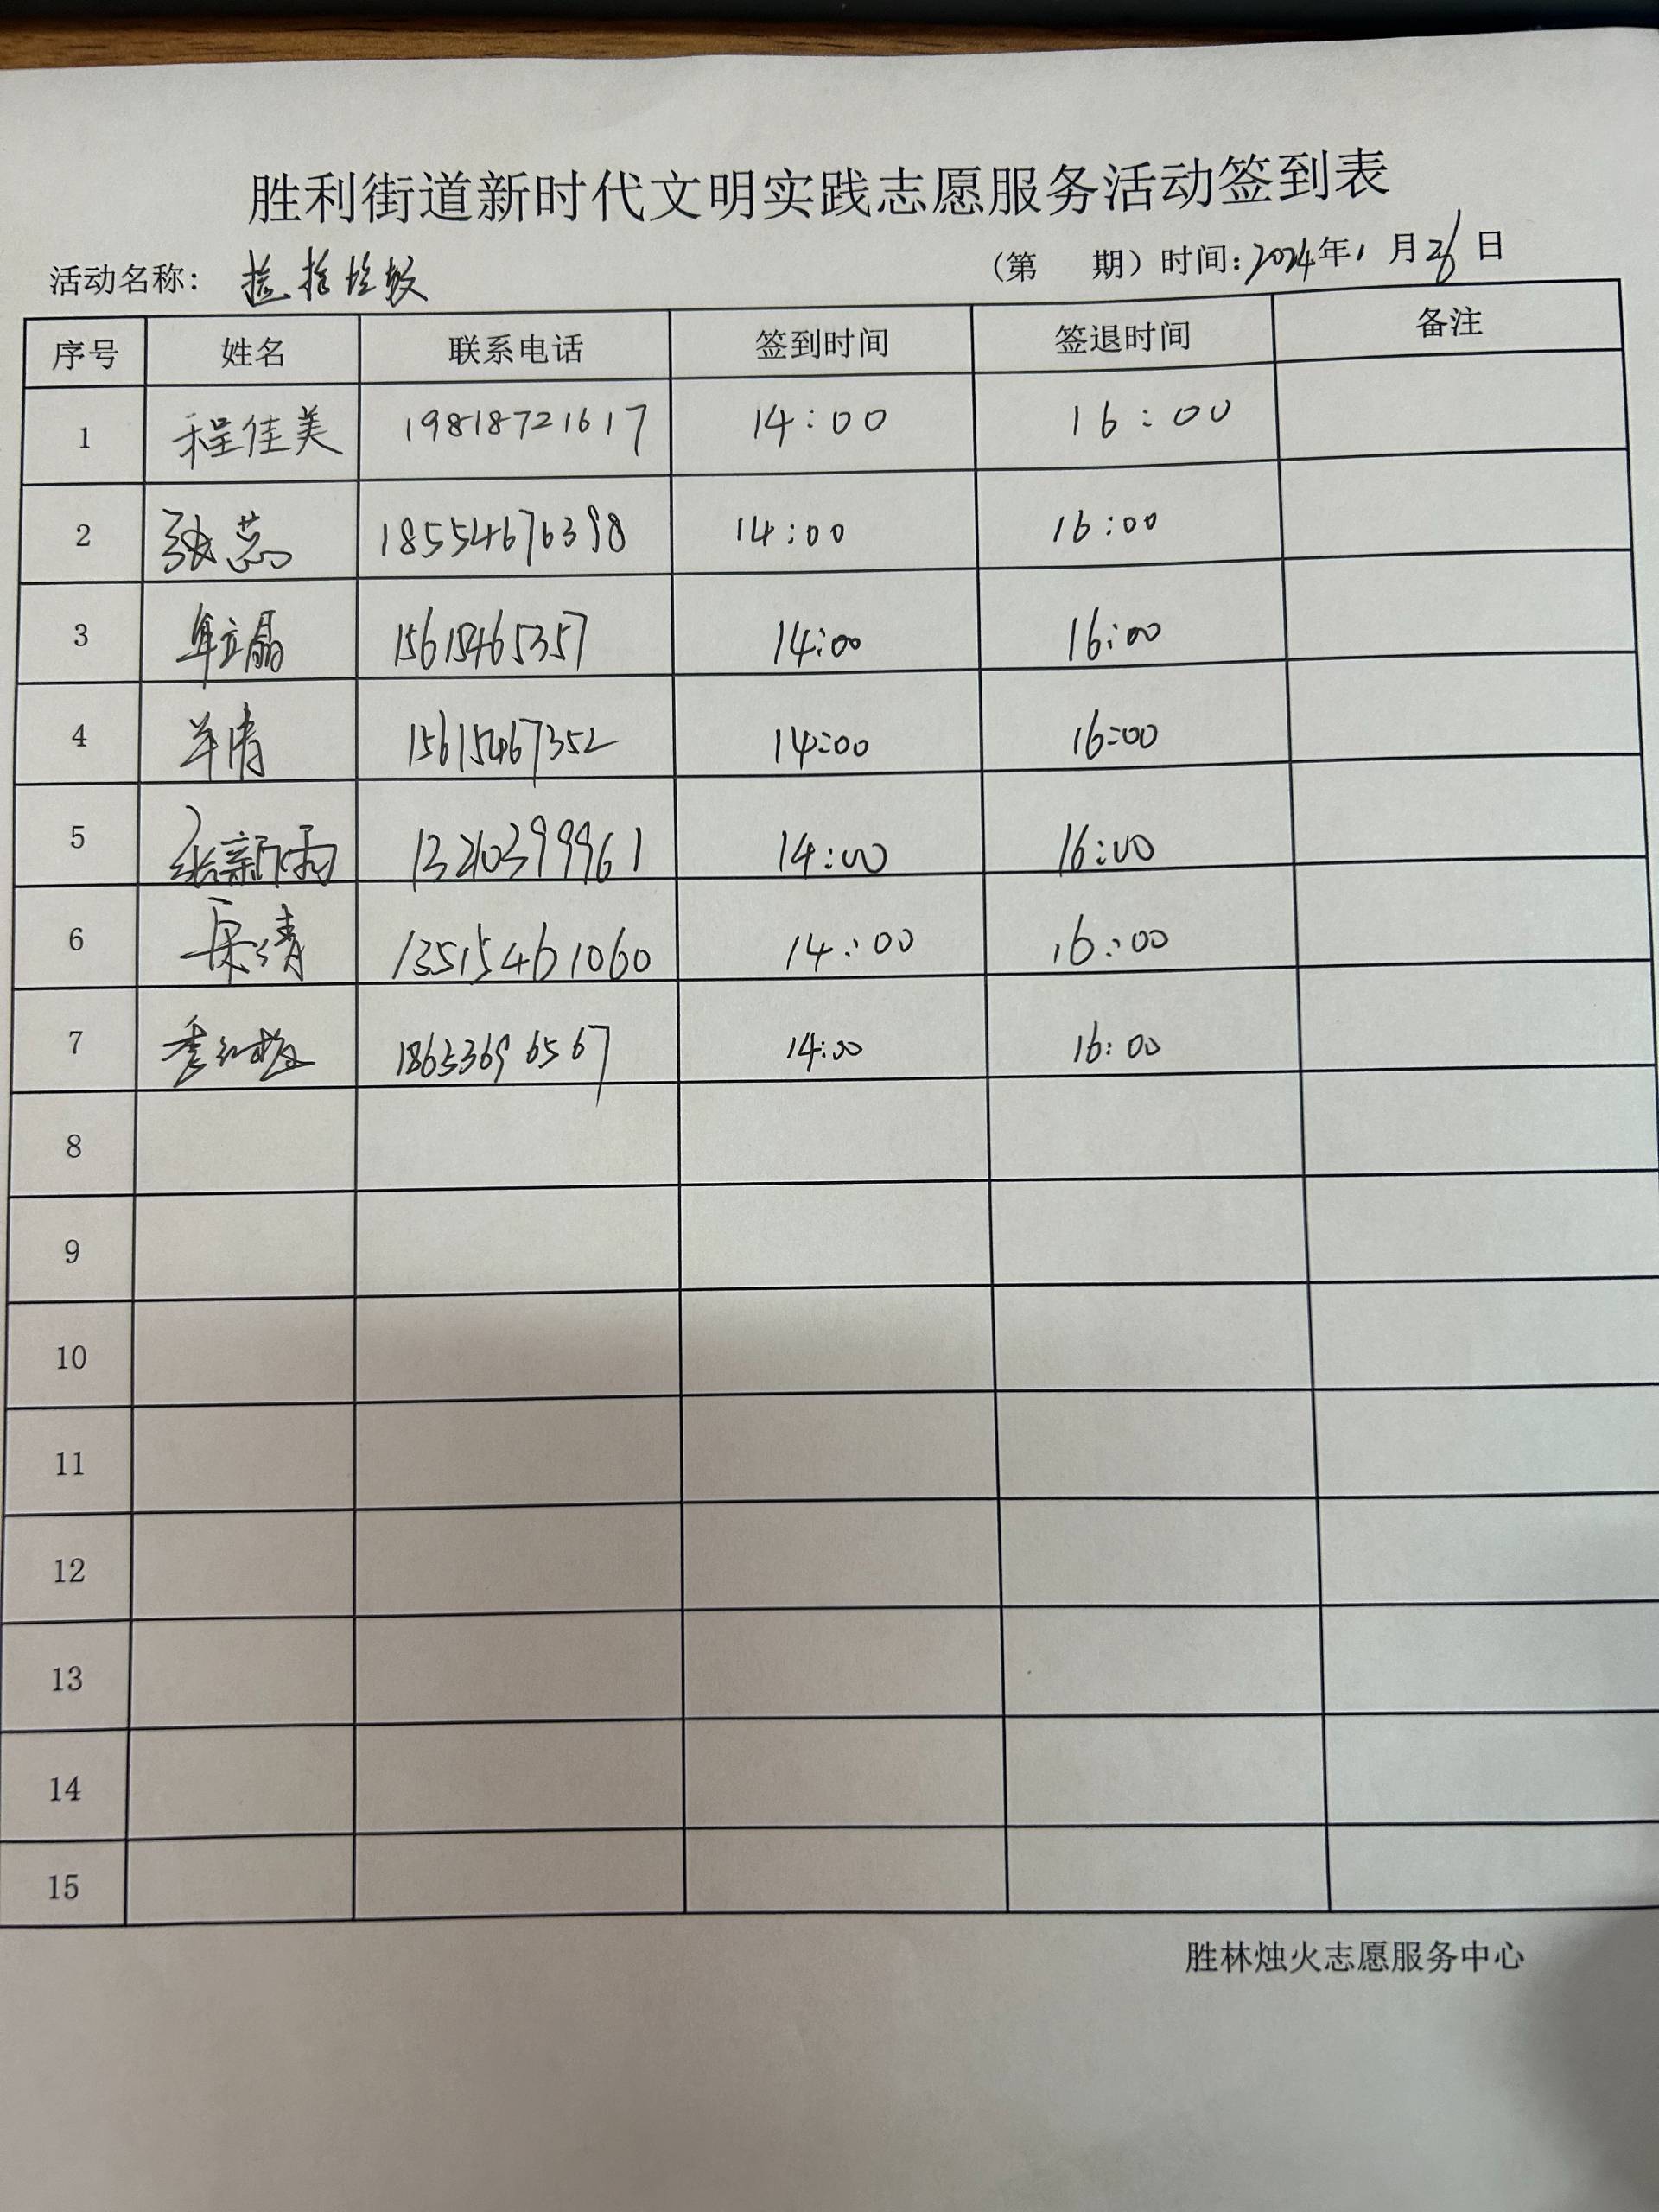 胜利街道新时代文明实践志愿服务活动签到表
活动名称: 捡拾垃圾 (第 期) 时间:2024年1月26日
序号 姓名 联系电话 签到时间 签退时间 备注
1 程佳美 19818721617 14:00 16:00
2 张蕊 18554676398 14:00 16:00
3 15615465357 14:00 16:00
4 15615467352 14:00 16:00
5 张新雨 13210399961 14:00 16:00
6 13515461060 14:00 16:00
7 18653696567 14:00 16:00
8
9
10
11
12
13
14
15
胜林烛火志愿服务中心